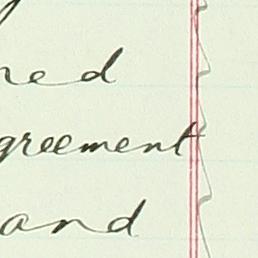 ned
greement
and